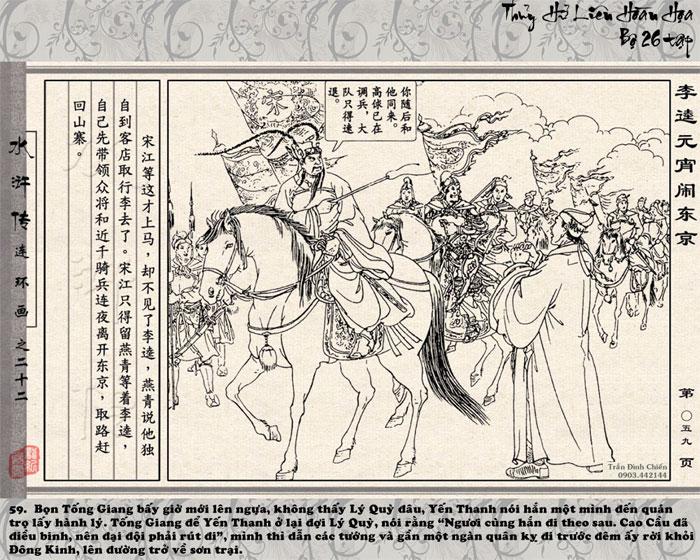 Thủy Hử Liên Hoàn Họa
Bộ 26 tập
李逵元宵闹东京
第〇五九页
你随后和
他同来。
高俅已在
调兵，大
队只得速
退。
宋江等这才上马，却不见了李逵，燕青说他独
自到客店取行李去了。宋江只得留燕青等着李逵，
自己先带领众将和近千骑兵连夜离开东京，取路赶
回山寨。
水浒传连环画之二十二
Trần Đình Chiến
0903.442144
59. Bọn Tống Giang bấy giờ mới lên ngựa, không thấy Lý Quỳ đâu, Yến Thanh nói hắn một mình đến quán
trọ lấy hành lý. Tống Giang để Yến Thanh ở lại đợi Lý Quỳ, nói rằng “Ngươi cùng hắn đi theo sau. Cao Cầu đã
điều binh, nên đại đội phải rút đi”, mình thì dẫn các tướng và gần một ngàn quân kỵ đi trước đêm ấy rời khỏi
Đông Kinh, lên đường trở về sơn trại.